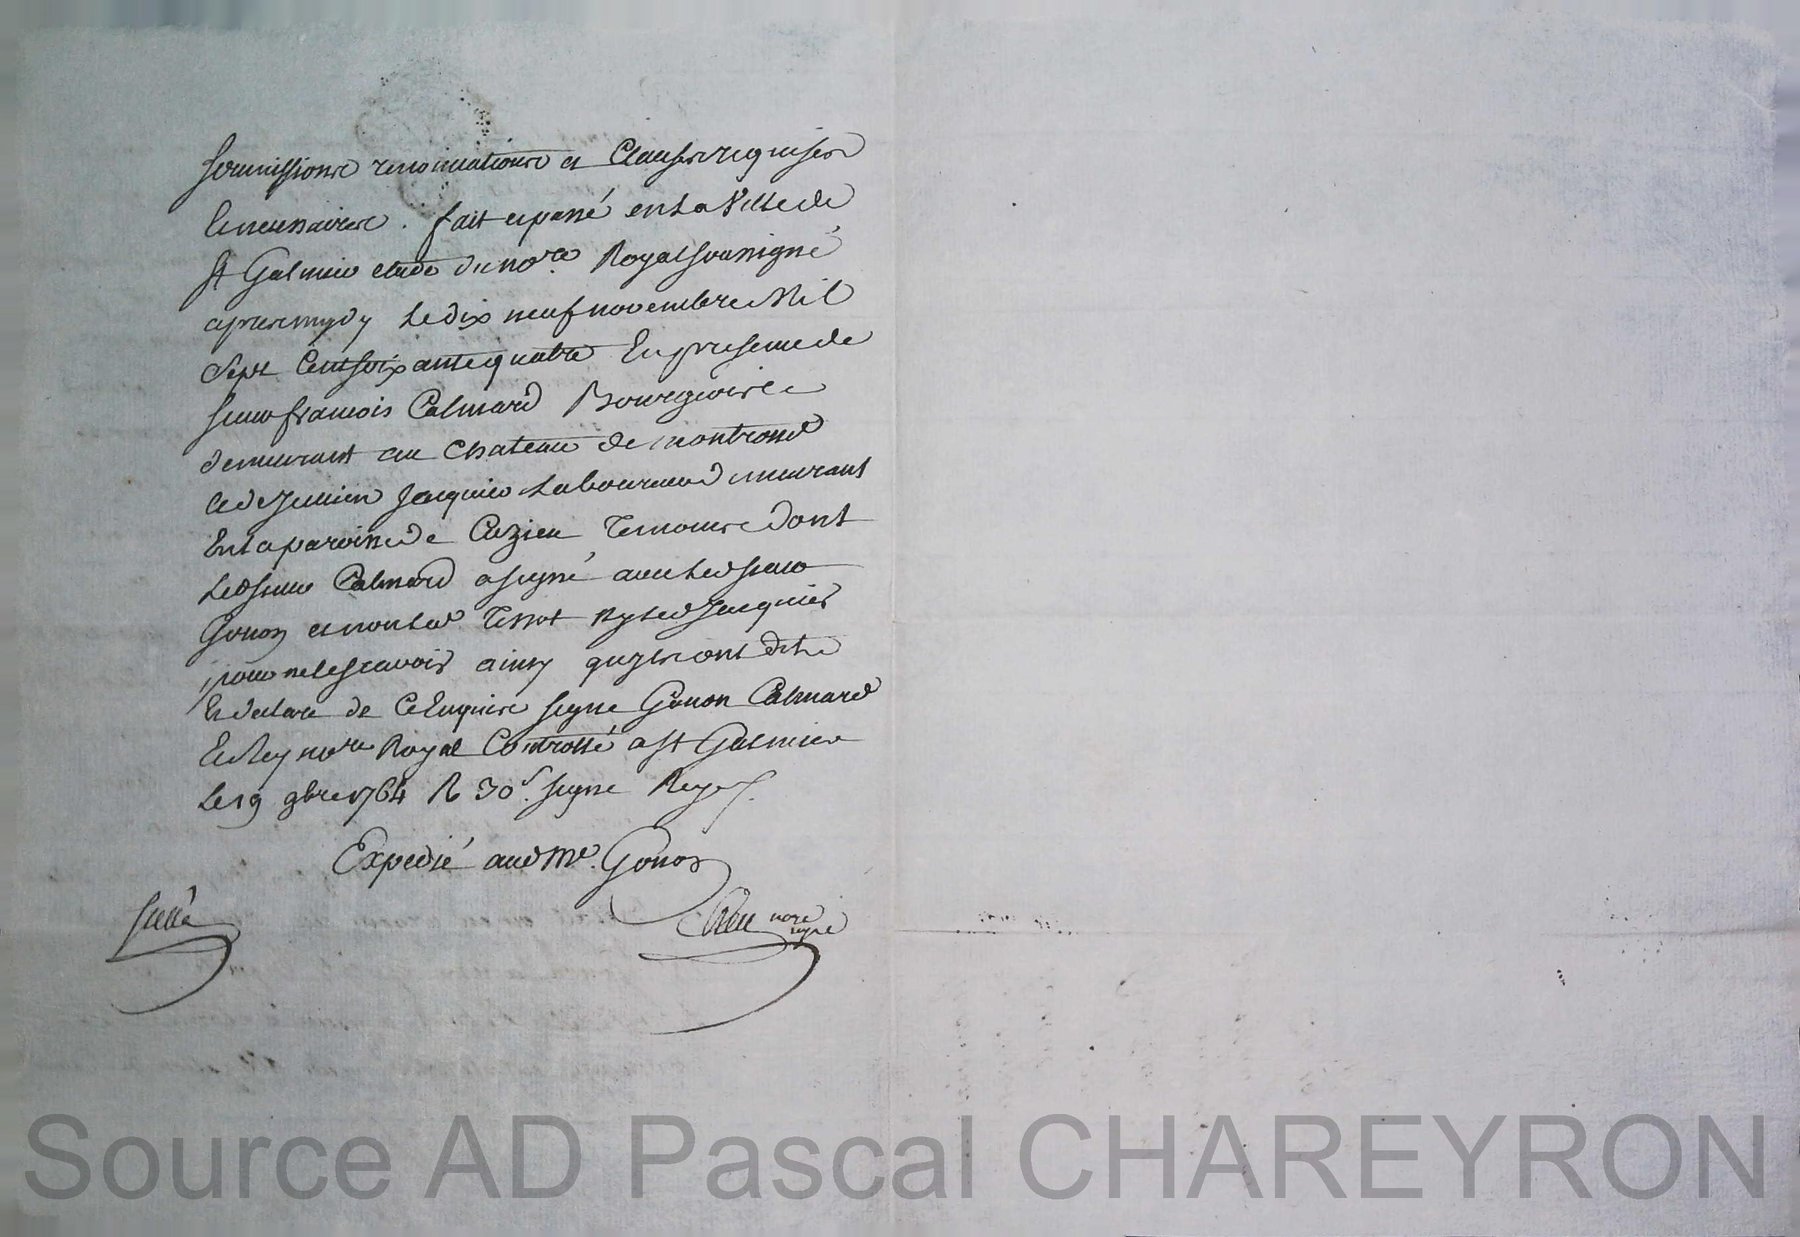 soumissions renonciations et Clauses requises
et necessaires . fait et passé en la Ville de
St Galmier etude du nore. Royal soussigné
apres mydy Le dix neuf novembre Mil
Sept Cent soixante quatre En presence de
sieur francois Calmard Bourgeois
demeurant au Chateau de montrond
et de Jacquier Laboureur demeurant
En la paroisse de Cuzieu Temoins dont
Led sieur Calmard a signé avec led sieur
Gonon et non led Tissot ny led Jacquier
pour ne le scavoir ainsy qu'yls ont dit
En declaré de Ce Enquis signé Gonon Calmard
Et Rey nore Royal Controllé a St Galmier
Le 19 9bre 1764 R 30s. signé Rey
Expedié aud Me. Gonon
scellé
nore
royal
Source AD Pascal CHAREYRON